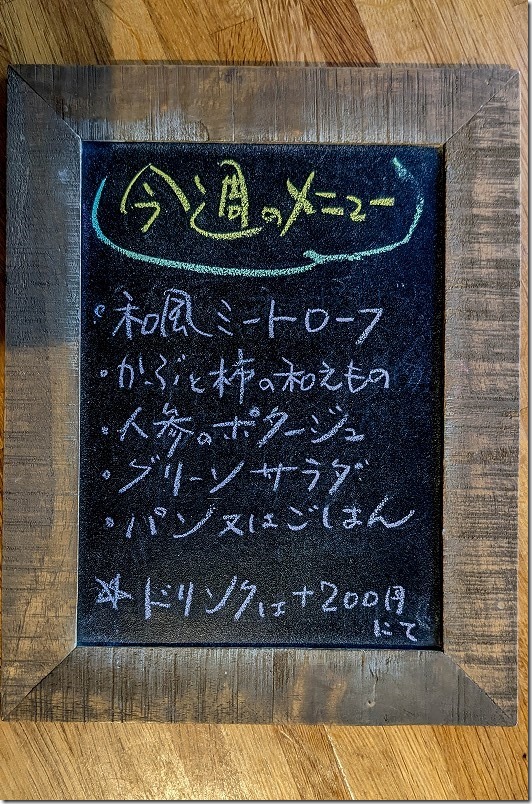 今週のメニュー
・和風ミートローフ
・かぶと柿の和えもの
・人参のポタージュ
・グリーンサラダ
・パン又はごはん
＊ドリンクは+200円
にて